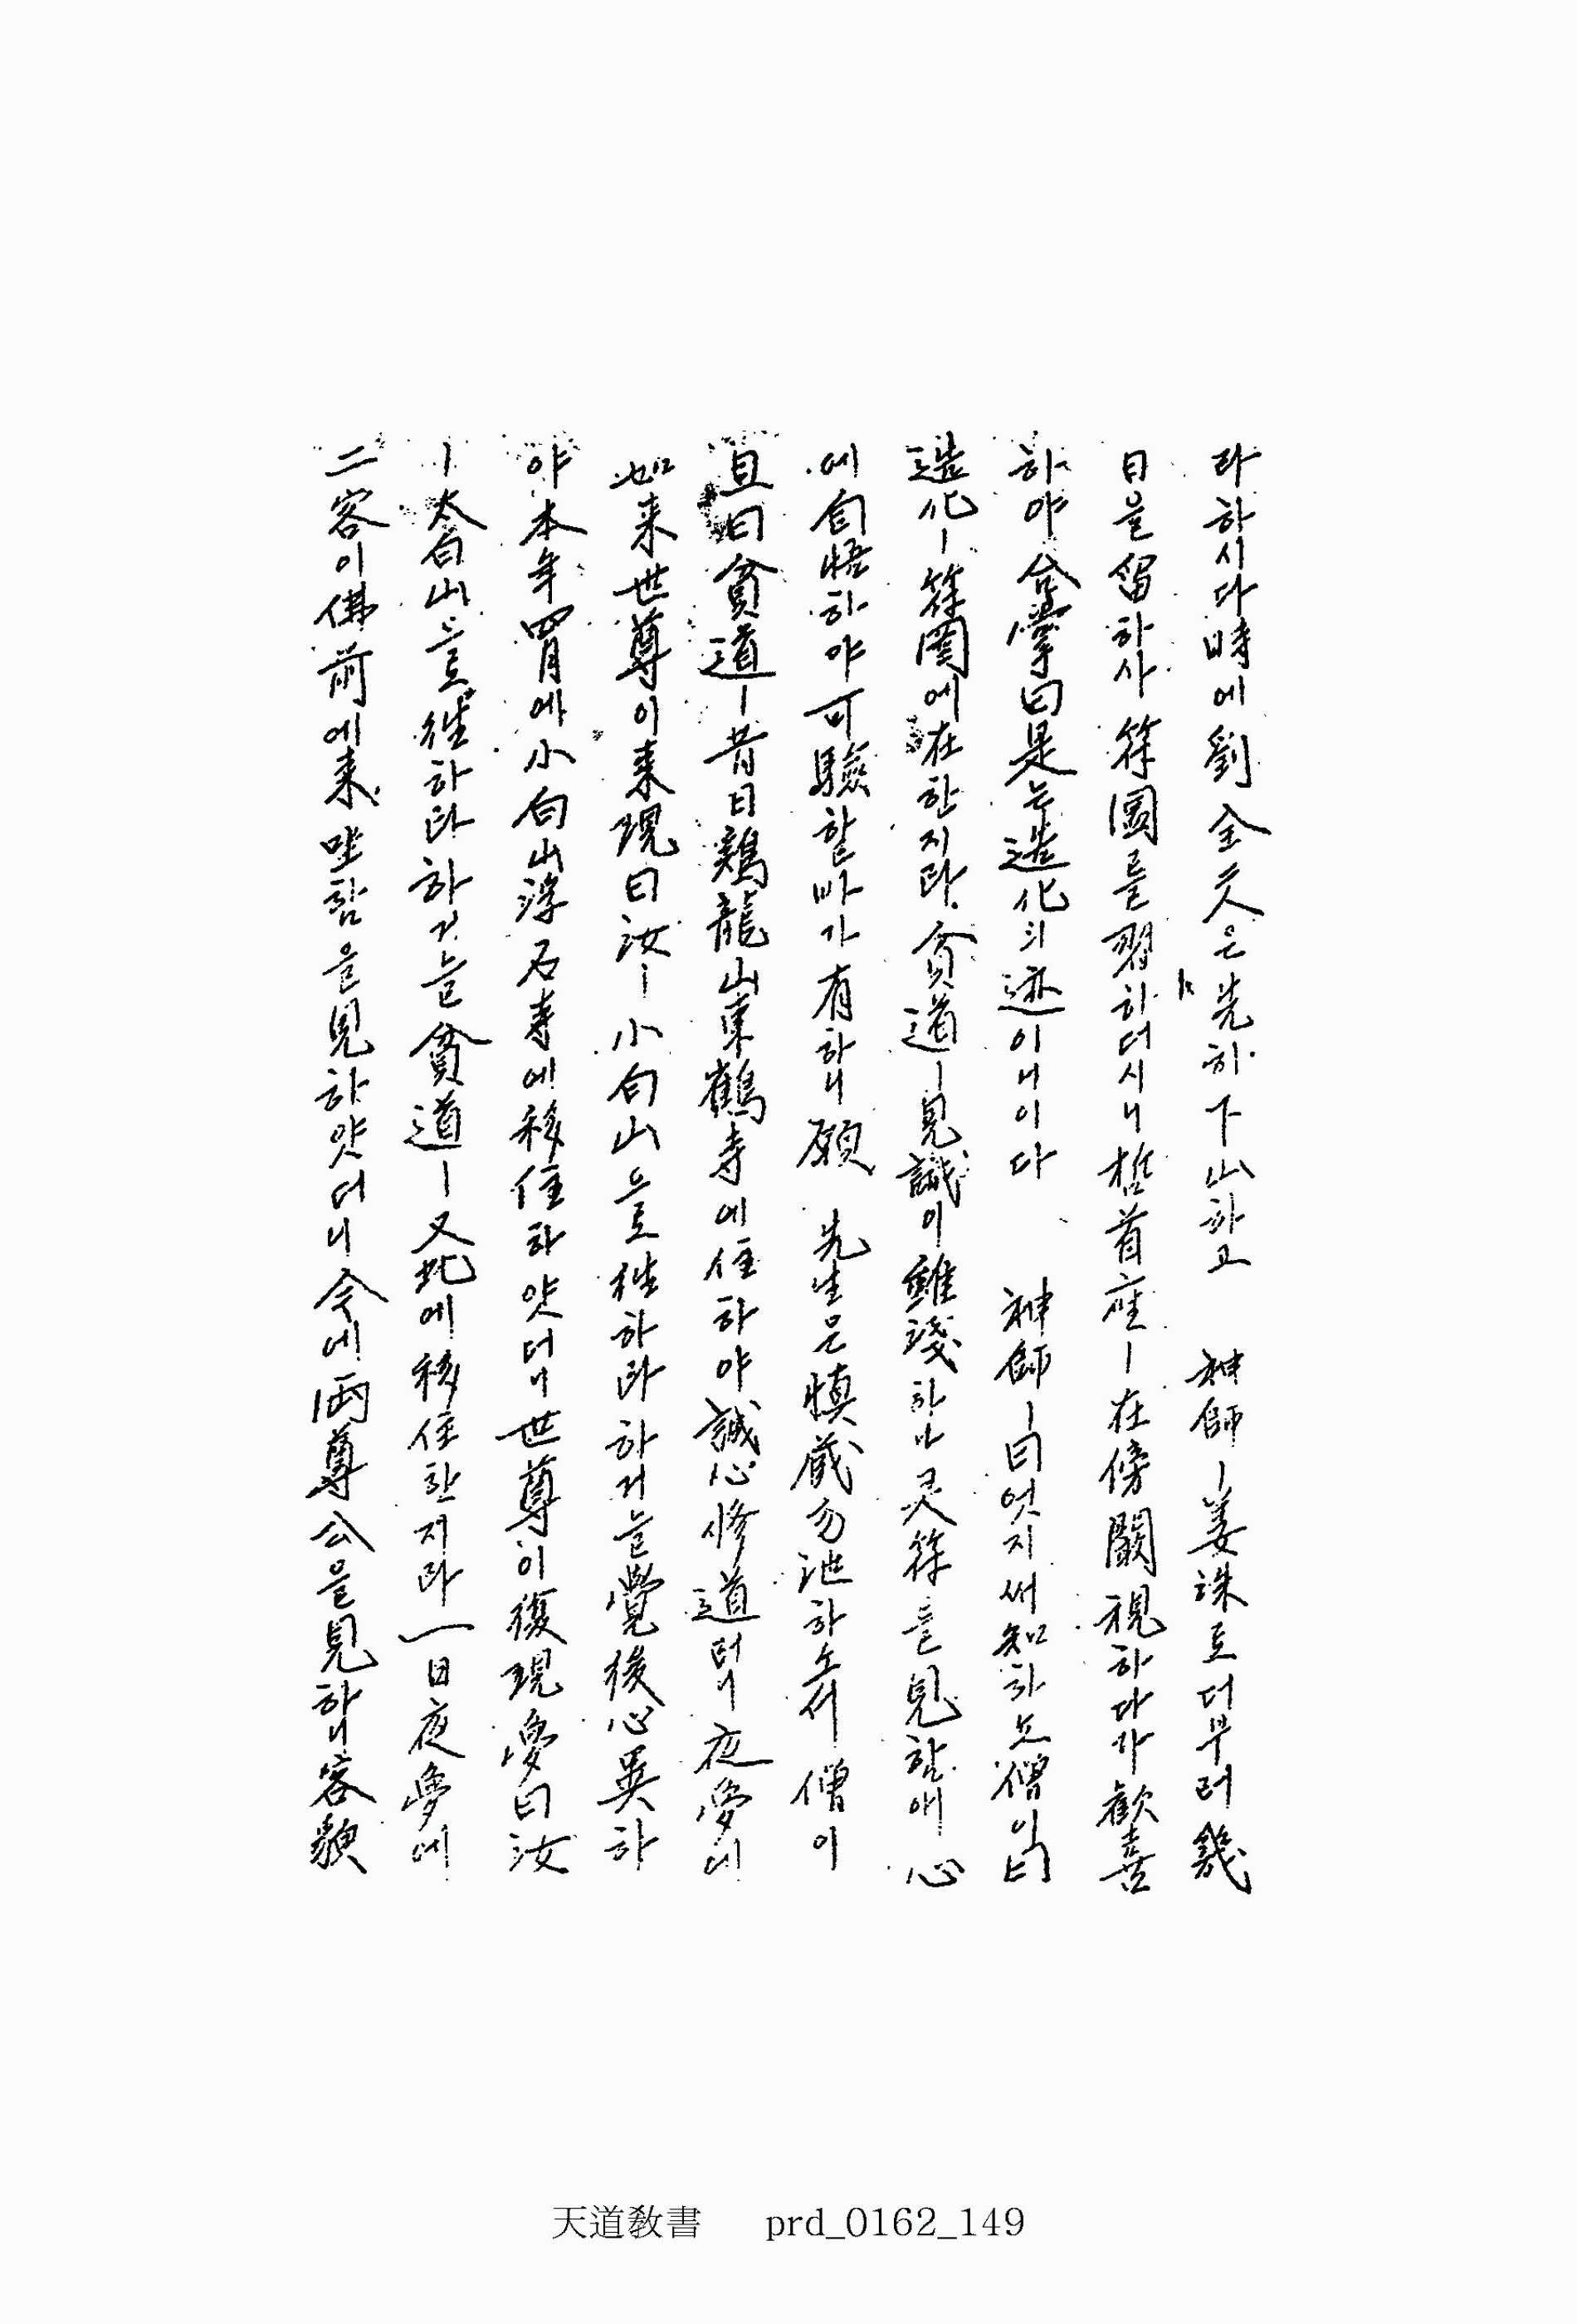 라하시다時에劉全二人은先히下山하고 神師ㅣ姜洙로더부러幾
日을留하사符圖를習하더시니哲首座ㅣ在傍闚視하다가歡喜
하야合掌曰是는造化의迹이니이다 神師ㅣ曰엇지써知하노僧이曰
造化ㅣ符圖에在한지라貧道ㅣ見識이雖淺하나灵符를見할애心
에自悟하야可驗할바가有하니願 先生은愼藏勿泄하소셔僧이
且曰貧道ㅣ昔日鷄龍山東鶴寺에住하야誠心修道터니夜夢에
如来世尊이来現曰汝ㅣ小白山으로往하라하거늘覺後心異하
야本年四月에小白山浮石寺에移住하얏더니世尊이復現夢曰汝
ㅣ太白山으로往하라하거늘貧道ㅣ又此에移住한지라一日夜夢에
二客이佛前에来坐함을見하얏더니今에兩尊公을見하니容貌
天道敎書 prd_0162_149